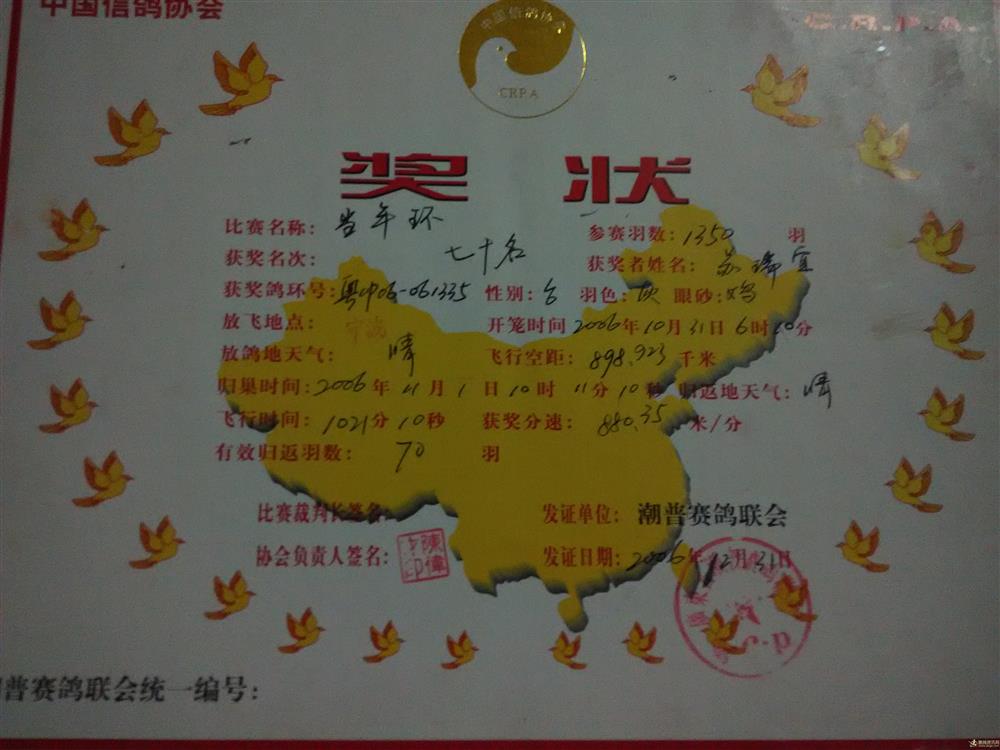 中国信鸽协会
C.R.P.A.
中国信鸽协会
CRPA
奖 状
比赛名称: 当年环 参赛羽数: 1350 羽
获奖名次: 七十名 获奖者姓名: 苏 宜
获奖鸽环号: 粤中06-061335 性别: 羽色: 灰 眼砂: 鸡
放飞地点: 宁波 开笼时间 2006年10月31日6时 分
放鸽地天气: 晴 飞行空距: 898.923 千米
归巢时间: 2006年11月1日10时11分10秒 归返地天气: 晴
飞行时间: 1021分10秒 获奖分速: 880.35 米/分
有效归返羽数: 70 羽
比赛裁判长签名: 发证单位: 潮普赛鸽联会
协会负责人签名: 发证日期: 2006年12月31日
普赛鸽联会统一编号: